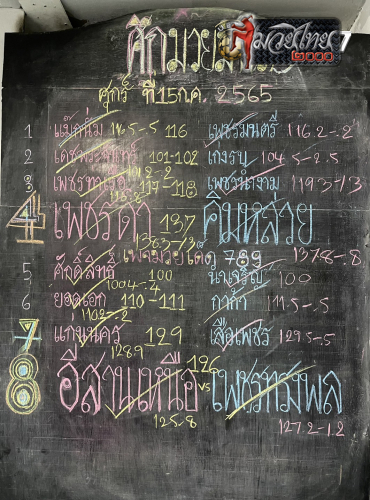 ศึกมวยมันส์
มวยไทย 7
๒๐๐๐
ศุกร์ ที่ 15 ก.ค. 2565
1 116.5-.5 116 เพชรมนตรี 116.2-.2
2 101-102 เก่งรบ 104.5-2.5
3 112.2-.2 117-118 เพชรน้ำงาม 119.3-1.3
4 เพชรีดา 137 คิมหล่วย
138.3-1.3 เพชรมวยเด็ด 789 137.8-.8
5 ศักดิ์สิทธิ์ 100 นำเจริญ 100
100.4-.4
6 ยอดเอก 110-111 กาก้า 111.5-.5
110.2-.2
7 แกนนคร 129 เสือเพชร 129.5-.5
128.9
8 อีสานเหนือ 126 vs เพชรทมพล
125.8 127.2-1.2